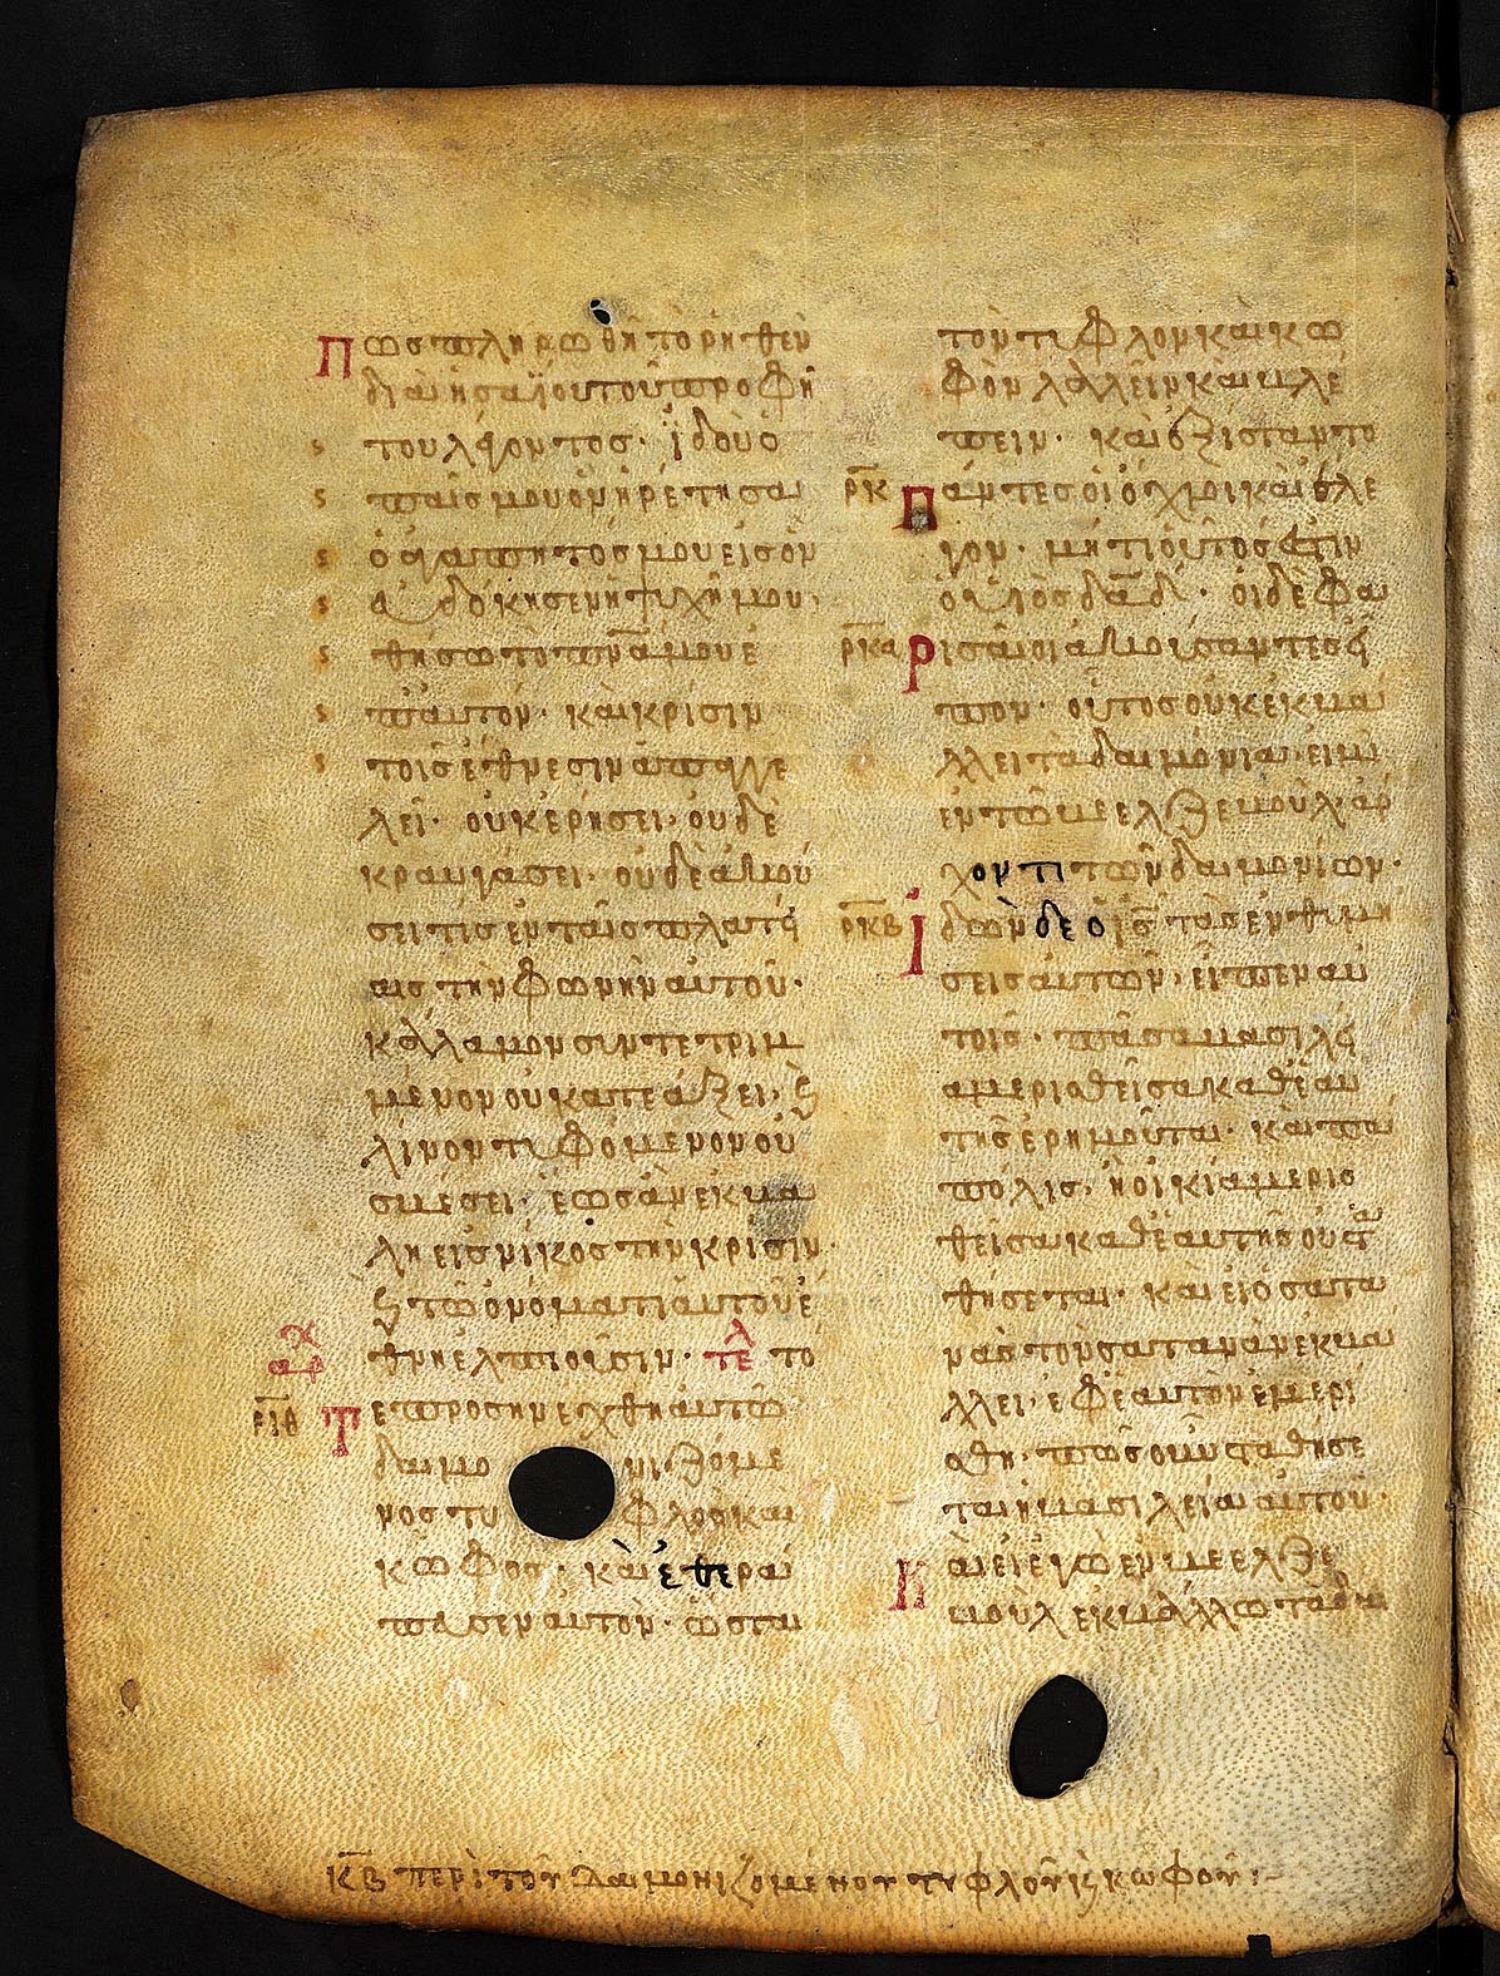 Πως πληρωθῆ τὸ ρηθὲν
διὰ ἠσαΐου τοῦ προφή
του λέγοντος· ἰδοὺ ὁ
παῖς μου ὃν ἠρέτησα
ὁ ἀγαπητός μου εἰς ὃν
εὐδόκησεν ἡ ψυχή μου·
θήσω τὸ πν̅α̅ μου ἐ
π' αὐτόν· καὶ κρίσιν
τοῖς ἔθνεσιν ἀπαγγε
λεῖ· οὐκ ἐρήσει· οὐδὲ
κραυγάσει· οὐδὲ ἀκού
σει τις ἐν ταῖς πλατεί
αις τὴν φωνὴν αὐτοῦ·
κάλαμον συντετριμ
μένον οὐ κατεάξει· ϗ
λίνον τυφόμενον οὐ
σβέσει· ἕως ἂν ἐκβά
λη εἰς νίκος τὴν κρίσιν·
ϗ τῶ ὀνόματι αὐτοῦ ἔ
αρχ θνη ἐλπιοῦσιν· τελ τό
ριθ Τε προσηνέχθη αὐτῶ
δαιμονιζόμε
νος τυφλὸς καὶ
κωφός· καὶ ἐθερά
πευσεν αὐτόν· ὥστε
τὸν τυφλὸν καὶ κω
φὸν λαλεῖν καὶ βλέ
πειν· καὶ ἐξίσταντο
ρκ Πάντες οἱ ὄχλοι καὶ ἔλε
γον· μήτι οὗτός ἐστιν
ὁ υἱὸς δα̅δ̅· οἱ δὲ φα
ρκα Ρισαῖοι ἀκούσαντες εἶ
πον· οὗτος οὐκ ἐκβά
λλει τὰ δαιμόνια· εἰ μὴ
ἐν τῶ βεελζεβοὺλ ἄρ
χοντι τῶν δαιμονίων·
ρκβ Ἰδὼν δὲ ὁ ις̅ τὰς ἐνθυμή
σεις αὐτῶν· εἶπεν αὐ
τοῖς· πᾶσα βασιλεί
α μερισθεῖσα καθ' ἑαυ
τῆς ἐρημοῦται· καὶ πᾶσα
πόλις· ἢ οἰκία μερισ
θεῖσα καθ' ἑαυτῆς οὐ στα
θήσεται· καὶ εἰ ὁ σατα
νᾶς τὸν σατανᾶν ἐκβά
λλει· ἐφ' ἑαυτὸν ἐμερί
σθη· πῶς οὖν σταθήσε
ται ἡ βασιλεία αὐτοῦ·
Καὶ εἰ ἐγὼ ἐν βεελζε
βοὺλ ἐκβάλλω τὰ δαι
κ̅β̅ περὶ τοῦ δαιμονιζομένου τυφλοῦ ϗ κωφοῦ:-